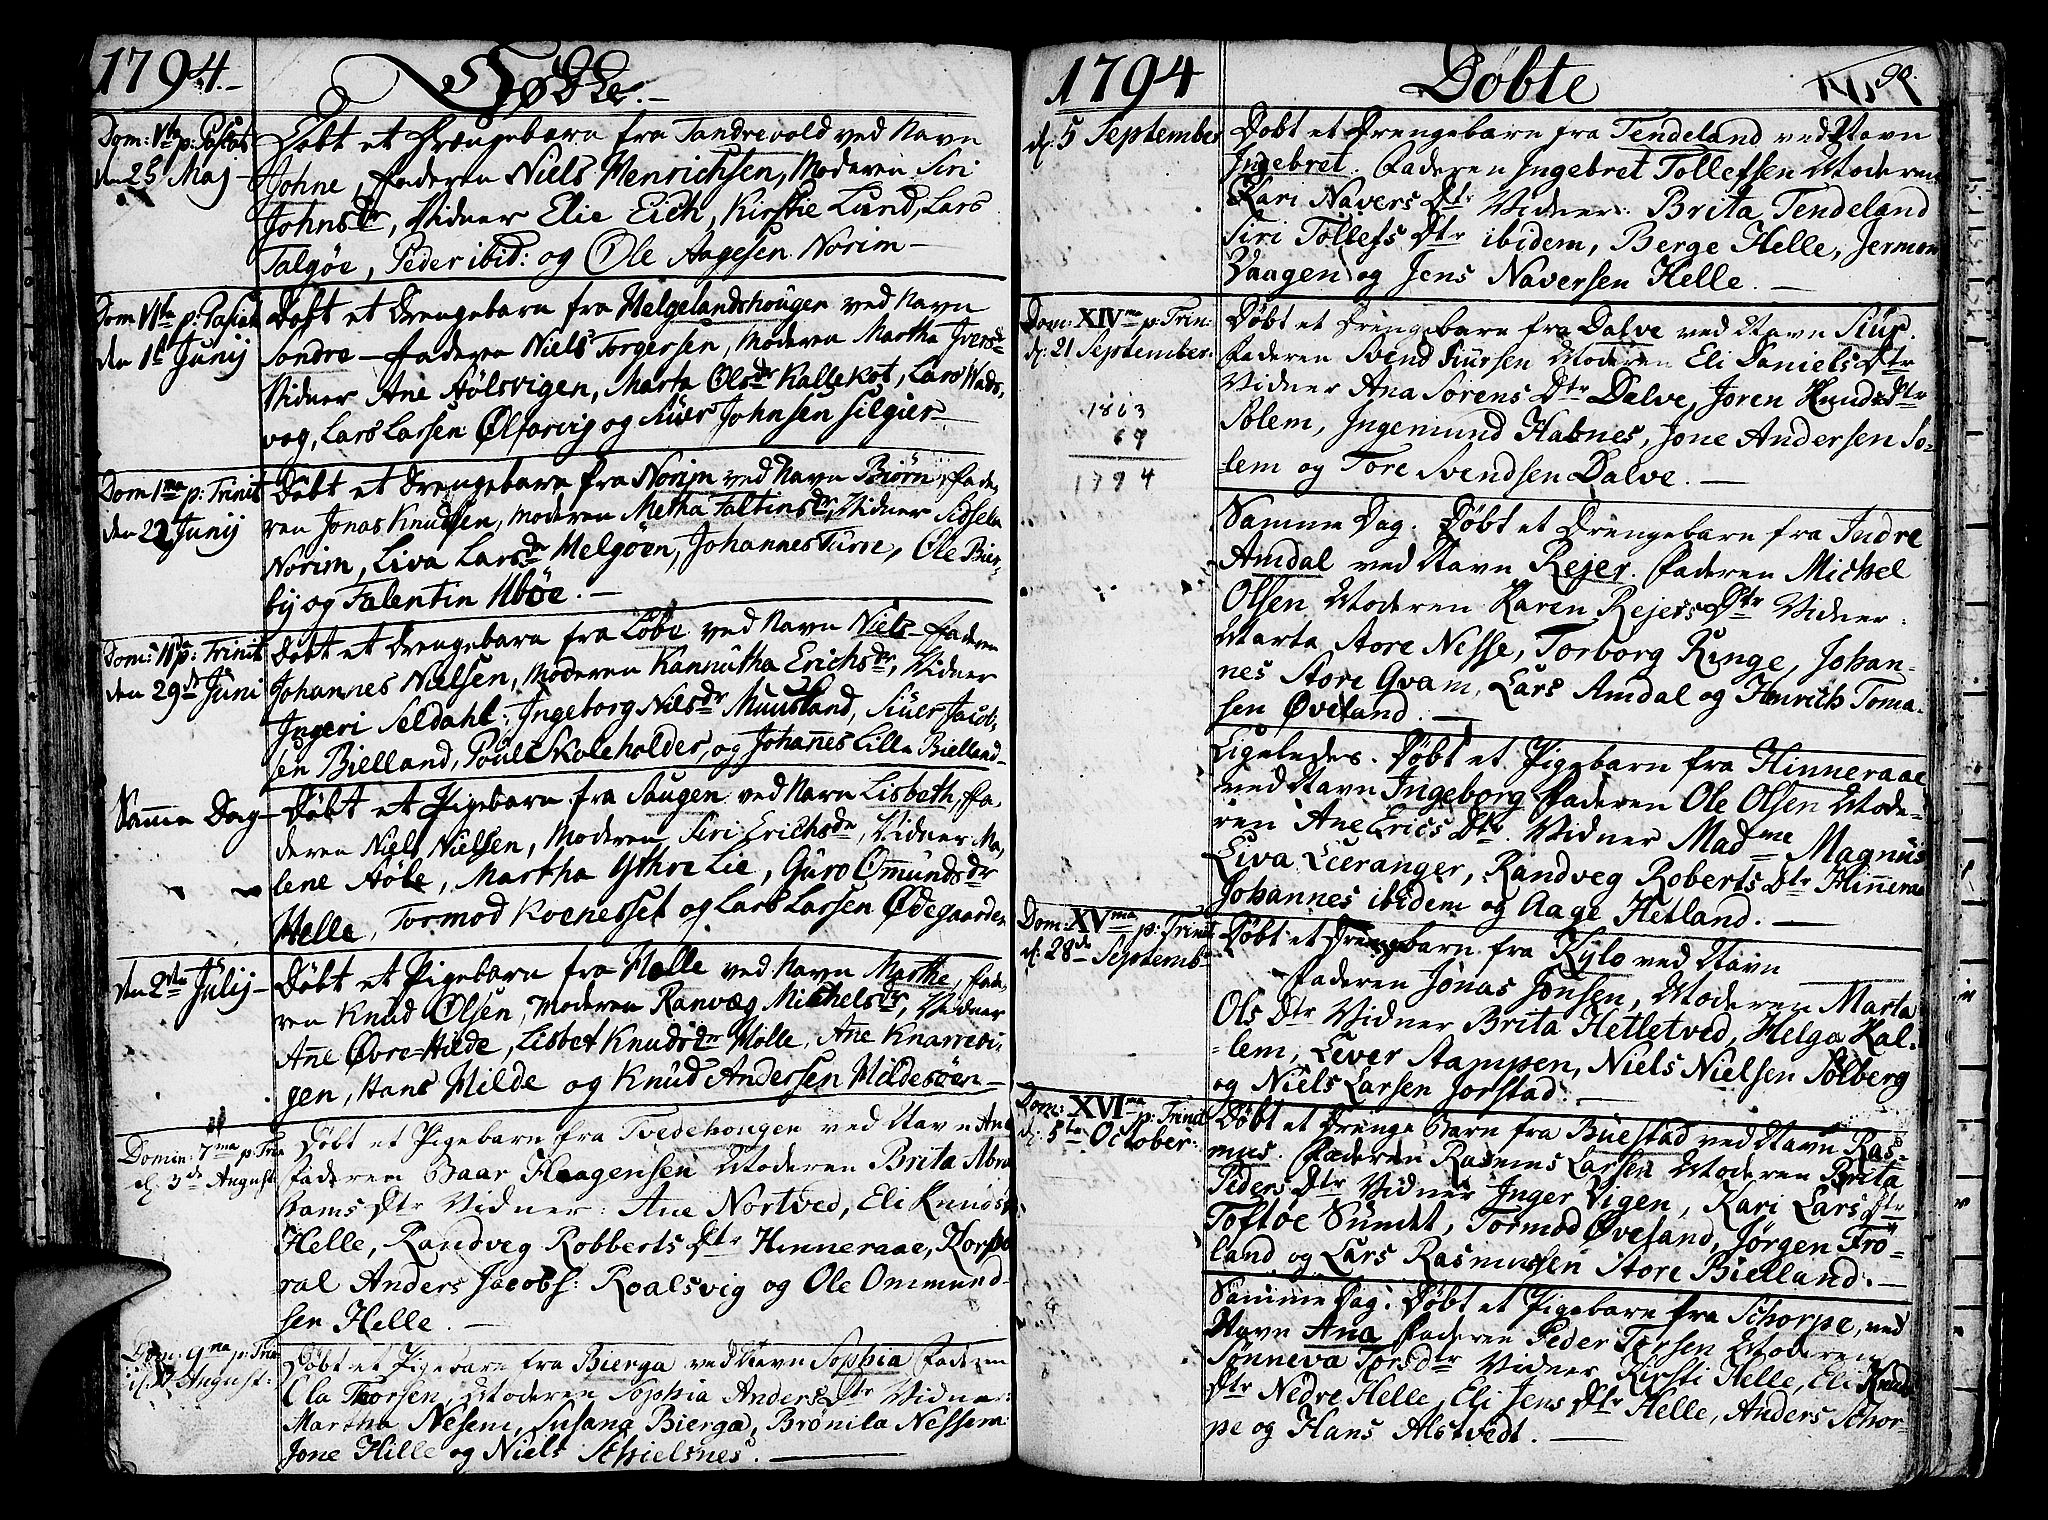 1794.-
Døbte.-
Dom: Vta p: Pascat
den 25 Maj-
Døbt et Drængebarn fra Tandrevold ved Navn
Johne, Faderen Niels Henrichsen, Moderen Siri
Johnsdr, Vidner Elie Eich, Kirstie Lund, Lars
Talgöe, Peder ibid: og Ole Aagesen Norim-
Dom VIta p: Pasch
den 1st Junij
Døbt et Drengebarn fra Helgelandshougen ved Navn
Sondre - Faderen Niels Torgersen, Moderen Martha Iversdr
Vidner Ane Aölsvigen, Marta Olsdr Kallekot, Lars Wads,
vog, Lars Larsen Ølfarvig og Siver Johnsen Silgier-
Dom 1ma p: Trinit
den 22 Junij
Døbt et Drengebarn fra Norim ved Navn Biörn, Fade,
ren Jonas Knudsen, Moderen Metha Faltinsdr, Vidner Sidsela
Norim, Liva Larsdr Helgöen, Johannes Turre, Ole Bier-
by og Falentin Uböe.-
Dom: IIda p: Trinit
den 29de Juni
Døbt et Drengebarn fra Löbe ved Navn Niels - Faderen
Johannes Nielsen, Moderen Kannutha Erichsdr, Vidner
Ingeri Seldahl: Ingeborg Nilsdr Muusland, Siuer Jacob,
sen Bielland, Poül Skoleholder, og Johannes Lille Bielland-
Samme Dag-
Døbt et Pigebarn fra Haugen ved Navn Lisbeth, Fa,
deren Niels Nielsen, Moderen Siri Erichsdr, Vidner Ma,
lene Aöbe, Martha Ythre Lie, Guro Omundsdr
Helle, Tormod Koenesset og Lars Larsen Ødegaarden
den 2den Julij-
Döbt et Pigebarn fra Molle ved Navn Marthe, Fade,
ren Knud Olsen, Moderen Ranvæg Michelsdr, Vidner
Ane Øvre=Hilde, Lisbet Knudsdr Molle, Ane Knarrevi,
gen, Hans Hilde og Knud Andersen Hildesöen-
Domin: 7ma p: Trin
d: 3de August
Döbt et Pigebarn fra Tvedehougen ved Navn Ane
Faderen Baar Haagensen Moderen Brita Abra
hams Dtr Vidner: Ane Nortved, Eli Knuds
Helle, Randveg Robberts Dtr Hinneraae, Korpo
ral Anders Jacobs: Roalsvig og Ole Ommund-
sen Helle.-
Dom: 9ma p: Trin
August:
Döbt et Pigebarn fra Bierga ved Navn Sophia Faderen
Ola Thorsen, Moderen Sophia Anders Dtr Vidner:
Martha Nesem, Susana Bierga, Brönila Nessem
Jone Hille og Niels Schielsnes.
1794
Döbte
98.
d: 5 September
Döbt et Drengebarn fra Tendeland ved Navn
Ingebret. Faderen Ingebret Tollefsen Moderen
Kari Navers Dtr Vidner: Brita Tendeland
Siri Tollefs Dtr ibidem, Berge Helle, Jermon
Vaagen og Jens Naversen Helle.-
Dom: XIVma p: Trin.
d: 21 September.
Döbt et Drengebarn fra Dalve ved Navn Siur.
Faderen Svend Siursen Moderen Eli Daniels Dtr
Vidner Ana Sörens Dtr Dalve, Joren Knuds Dtr
Solem, Ingemund Habnes, Jone Andersen So-
-lem og Tore Svendsen Dalve.-
1863
69
1794
Samme Dag. Döbt et Drengebarn fra Indre
Amdal ved Navn Rejer. Faderen Michel
Olsen Moderen Karen Rejers Dtr Vidner:
Marta Store Nesse, Torborg Ringe, Johan-
nes Store Gvam, Lars Amdal og Henrich Toma-
sen Øveland.-
Ligeledes. Döbt et Pigebarn fra Hinneraae
ved Navn Ingeborg Faderen Ole Olsen Mode-
ren Ane Erics Dtr. Vidner Madme Magnüs
Liva Lieranger, Randveg Roberts Dtr Hinneraa
Johannes ibidem og Aage Hetland.-
Dom: XVma p: Trinit
d: 28de Septembr
Döbt et Drengebarn fra Kylo ved Navn
Faderen Jonas Jonsen, Moderen Marta
Ols Dtr Vidner Brita Hetletved, Helga Kal-
-lem, Lever Stampen, Niels Nielsen Solberg
og Niels Larsen Jorstad.-
Dom: XVIma p: Trinit
d: 5te October:
Döbt et Drenge Barn fra Buestad ved Navn Ras-
mus. Faderen Rasmus Larsen Moderen Brita
Peders Dtr Vidner Inger Vigen, Kari Lars Dtr
Toftöe Sundt, Tormod Øveland, Jörgen Frö-
land og Lars Rasmussen Store Bielland.-
Samme Dag. Döbt et Pigebarn fra Schorpe, ved
Navn Ana Faderen Peder Torsen Moderen
Sönneva Torsdtr Vidner Kirsti Helle, Eli Knuds
Dtr Nedre Helle, Eli Jens Dtr Helle, Anders Schor-
pe og Hans Alstvedt.-